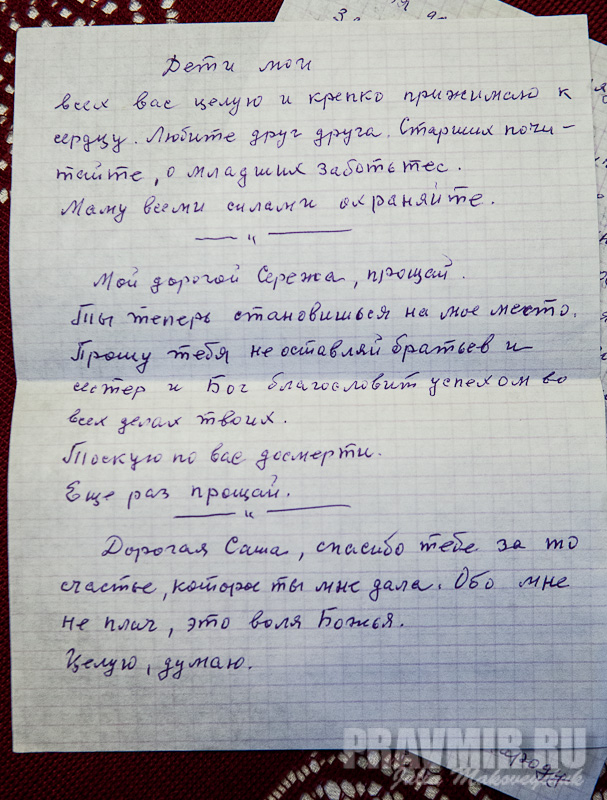 Дети мои
всех вас целую и крепко прижимаю к
сердцу. Любите друг друга. Старших почи-
тайте, о младших заботьтес.
Маму всеми силами охраняйте.
— " —
Мой дорогой Сережа, прощай.
Ты теперь становишься на мое место.
Прошу тебя не оставляй братьев и
сестер и Бог благословит успехом во
всех делах твоих.
Тоскую по вас досмерти.
Еще раз прощай.
— " —
Дорогая Саша, спасибо тебе за то
счастье, которое ты мне дала. Обо мне
не плач, это воля Божья.
Целую, думаю.
PRAVMIR.RU
Julia Makoveychuk